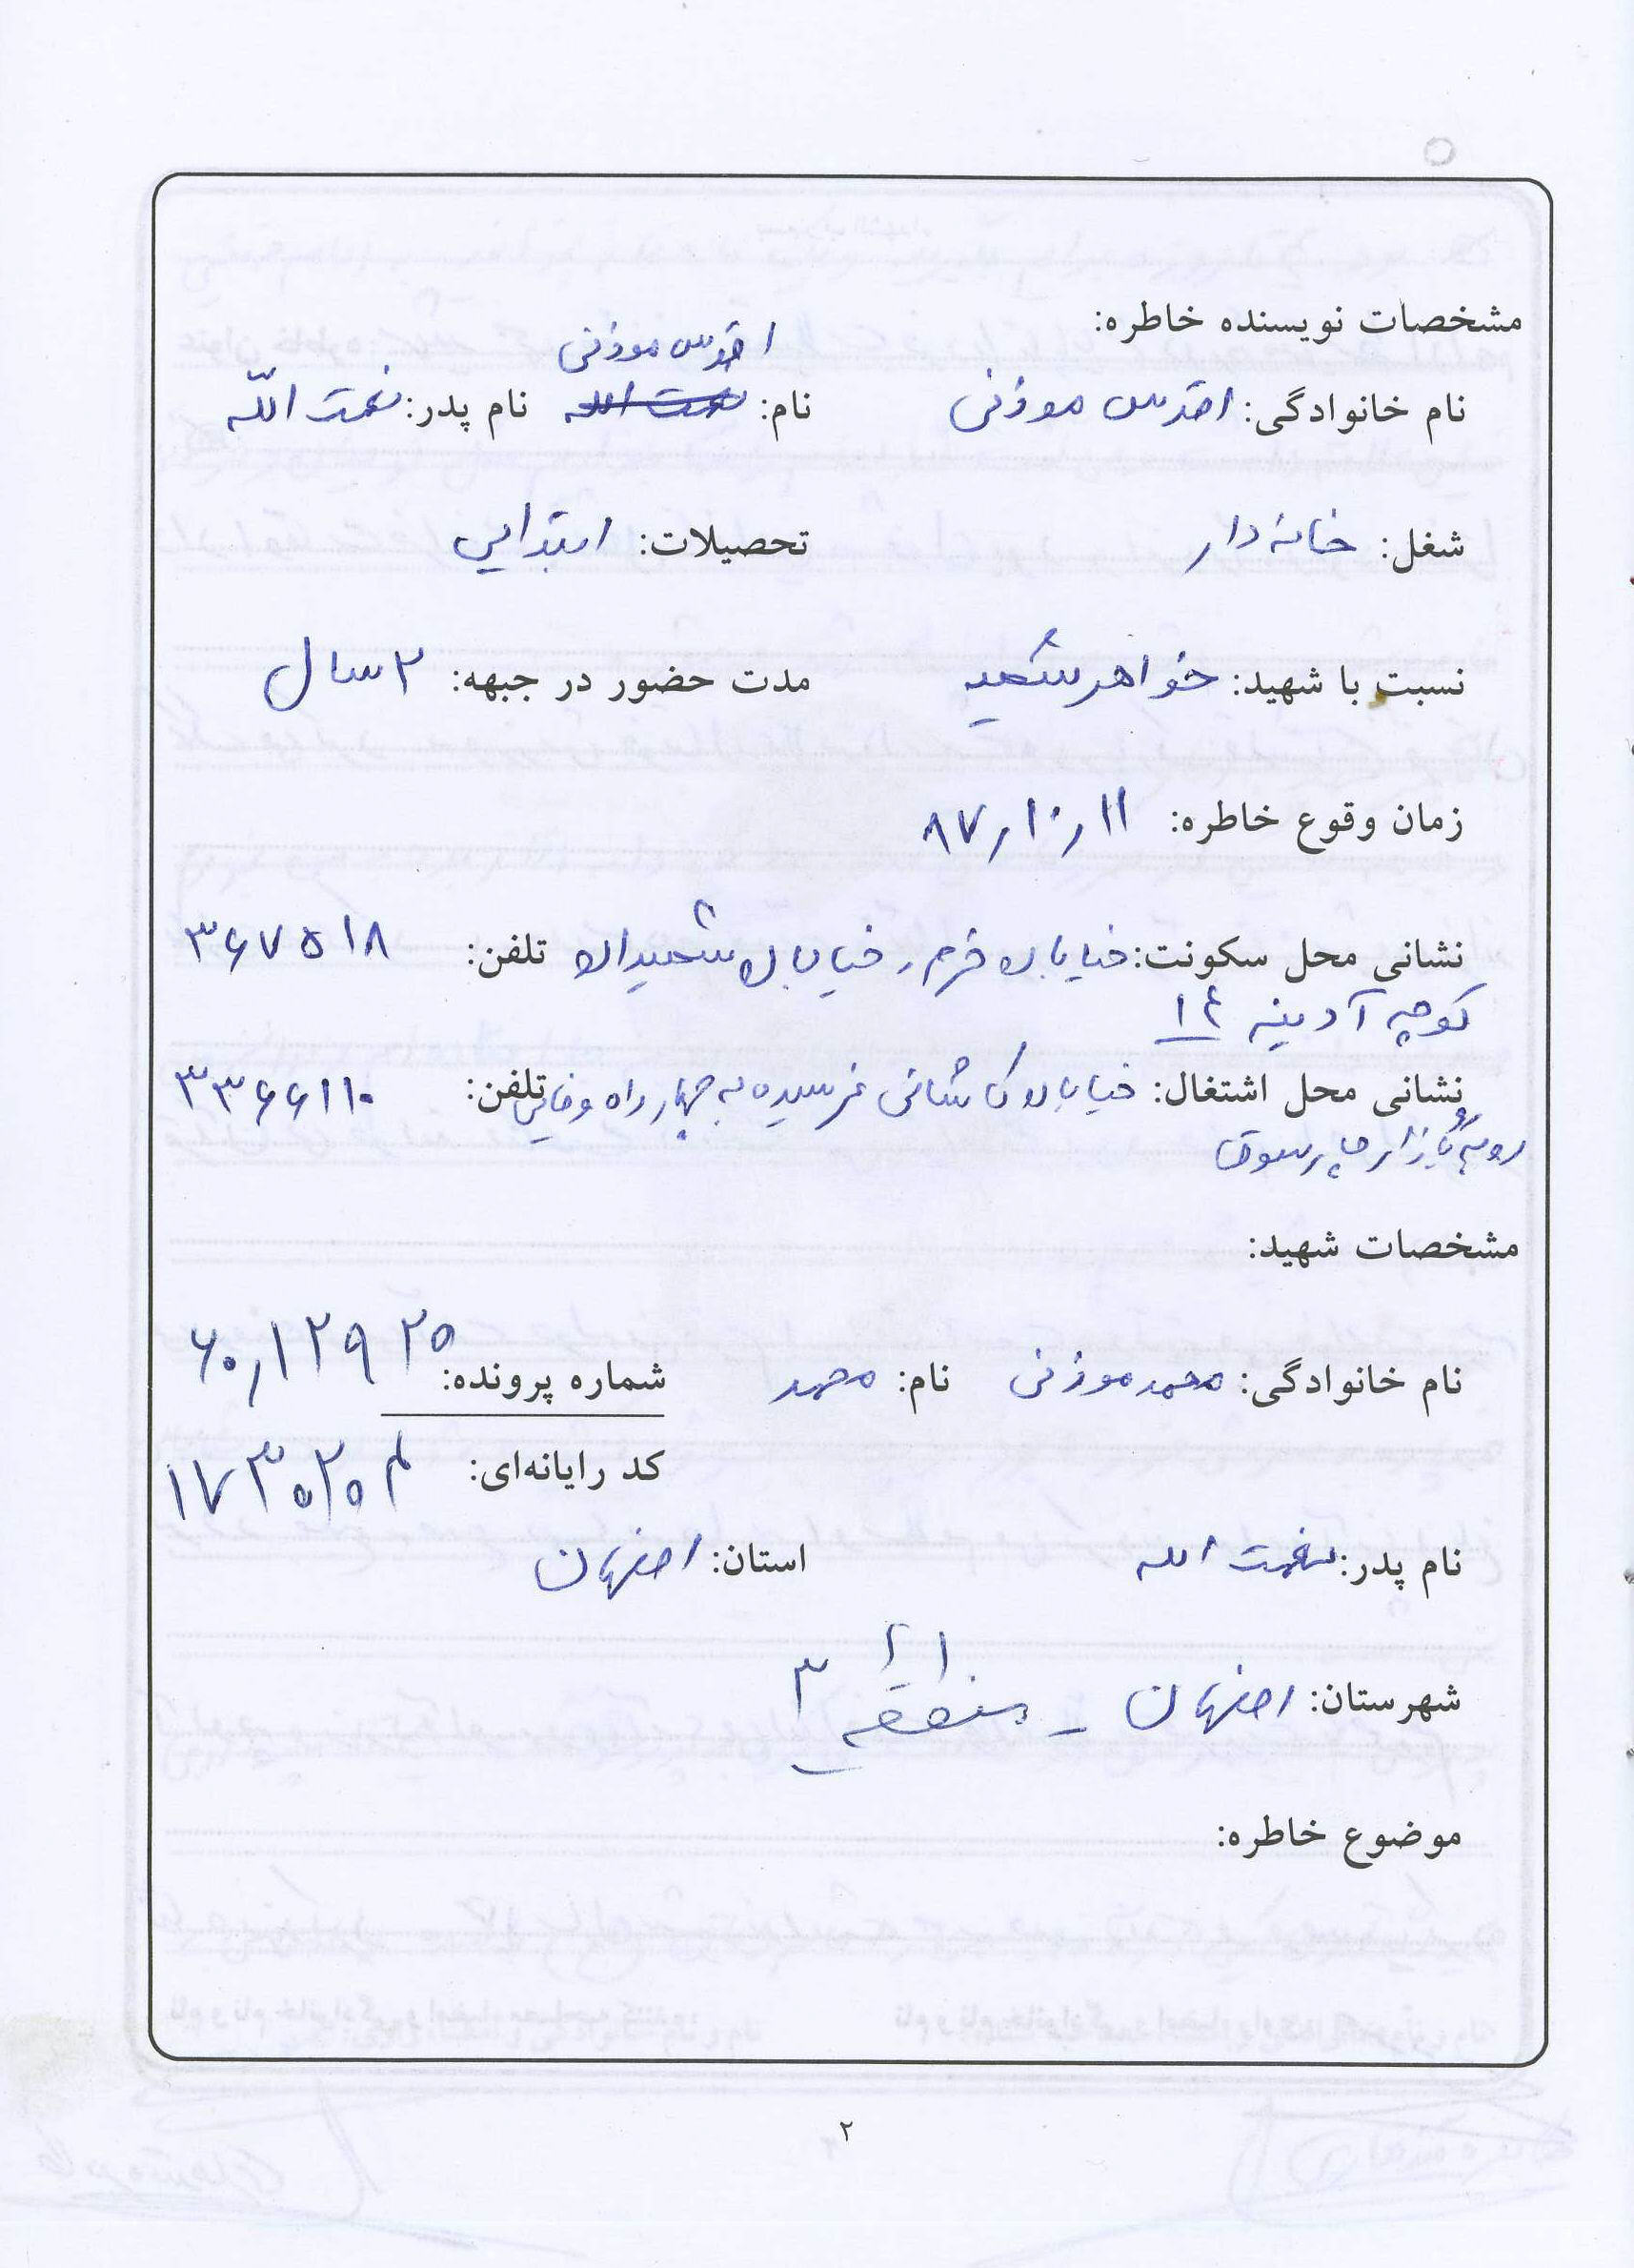 مشخصات نویسنده خاطره:
اقدس موذنی
نام خانوادگی: اقدس موذنی نام: نعمت الله نام پدر: نعمت اللّه
شغل: خانه دار تحصیلات: ابتدایی
نسبت با شهید: خواهر شهید مدت حضور در جبهه: ۲ سال
زمان وقوع خاطره: ۸۷/۱۰/۱۱
نشانی محل سکونت: خیابان خرم، خیابان شهیدان تلفن: ۳۶۷۵۱۸
کوچه آدینه ۱۴
نشانی محل اشتغال: خیابان کاشانی نرسیده به چهار راه وفایی تلفن: ۳۳۶۶۱۱۰
روبروی بازارچه
مشخصات شهید:
نام خانوادگی: محمد موذنی نام: محمد شماره پرونده: ۶۰/۱۲۹۲۵
کد رایانه‌ای: ۱۷۳۰۲۰۴
نام پدر: نعمت الله استان: اصفهان
شهرستان: اصفهان - منطقه ۳
موضوع خاطره:
۲